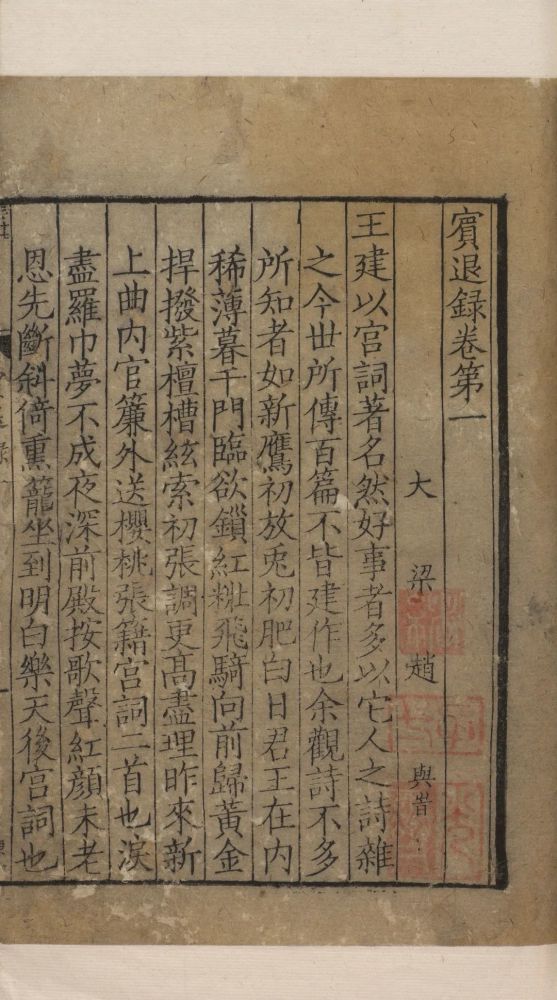 賓退錄卷第一
大梁趙與旹
王建以宫詞著名然好事者多以它人之詩雜
之今世所傳百篇不皆建作也余觀詩不多
所知者如新鷹初放兎初肥白日君王在内
稀薄暮千門臨欲鎖紅粧飛騎向前歸黃金
捍撥紫檀槽絃索初張調更髙盡理昨來新
上曲内官簾外送櫻桃張籍宫詞二首也淚
盡羅巾夢不成夜深前殿按歌聲紅顔未老
恩先斷斜倚熏籠坐到明白樂天後宫詞也